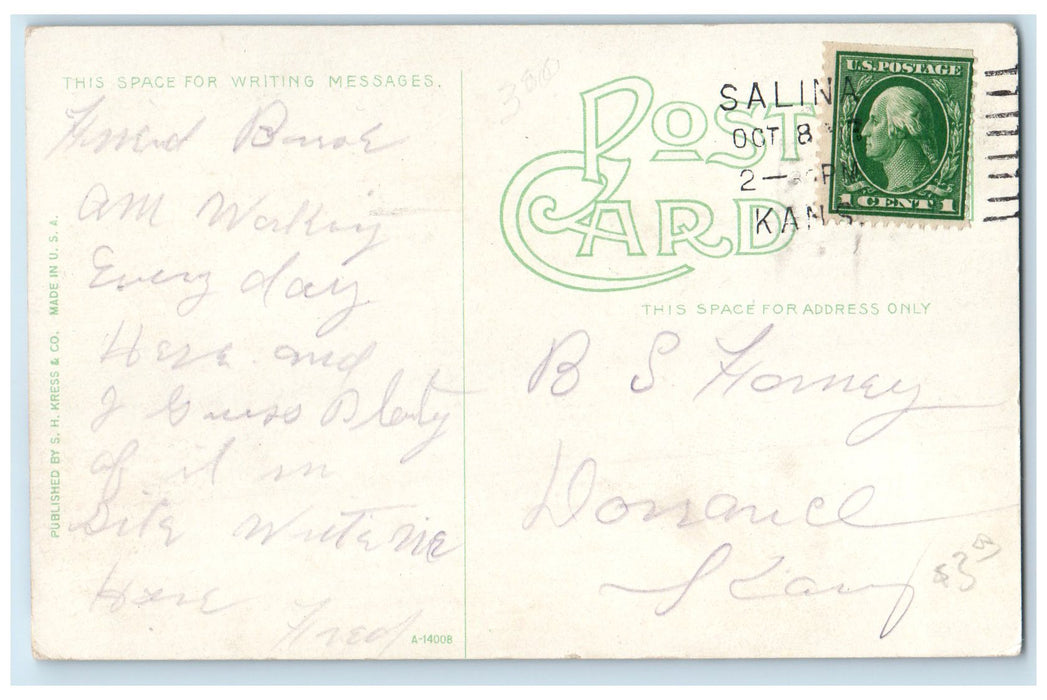 THIS SPACE FOR WRITING MESSAGES.
Friend
am Working
Every day
Here and
I Guess Plenty
of it in
Write me
Here
Fred
A-14008
PUBLISHED BY S. H. KRESS & CO. MADE IN U. S. A.
POST
CARD
SALINA
OCT 8
2— PM
KANS.
U.S. POSTAGE
1 CENT 1
THIS SPACE FOR ADDRESS ONLY
B S Forney
Dorrance
Kans
$3